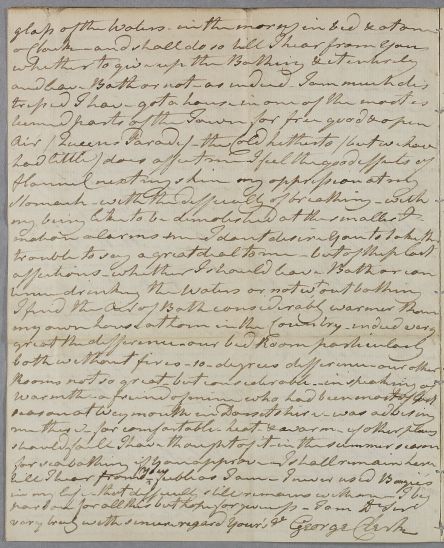 glass of the Waters - in the morng in bed & at one
o Clock - and shall do so till I hear from you
whether to give up the Bathing entirely
and leave Bath or not - as indeed I am much dis
tressed I have got a house - in one of the most
parts of the Town for fine good & open
Air (Queens Parade) - the Cold hetherto (but we have
had little) does affect me I feel the good effects of
flannel next my skin my oppression at my
Stomach - with the difficulty of breathing - with
my being like to be demolished at the smallest
motion alarms me I dont desire you to take the
trouble to say a great deal to me - but of these last
affections - whether I should leave Bath or con
tinue drinking the Waters or not without bathing
I find the Air of Bath considerably warmer than
my own house at home in the Country - indeed very
great the difference - our bed Room particularly
both without fires - 10 degrees difference - our other
Rooms not so great but considerable - in speaking of
warmth a friend of mine who had been most of last
season at Weymouth in Dorsetshire - was advising
me this - for comfortable heat & warm - if other places
should fail I have thought of it - in the summer season
for sea bathing if you approve - I shall remain here
till I hear from you - feeble as I am - I never used
in my life - that difficulty still remains with me - I beg
pardon for all this but hope for yours - I am Dr Sir
very truly with sincere regard Yours &c George Clerk